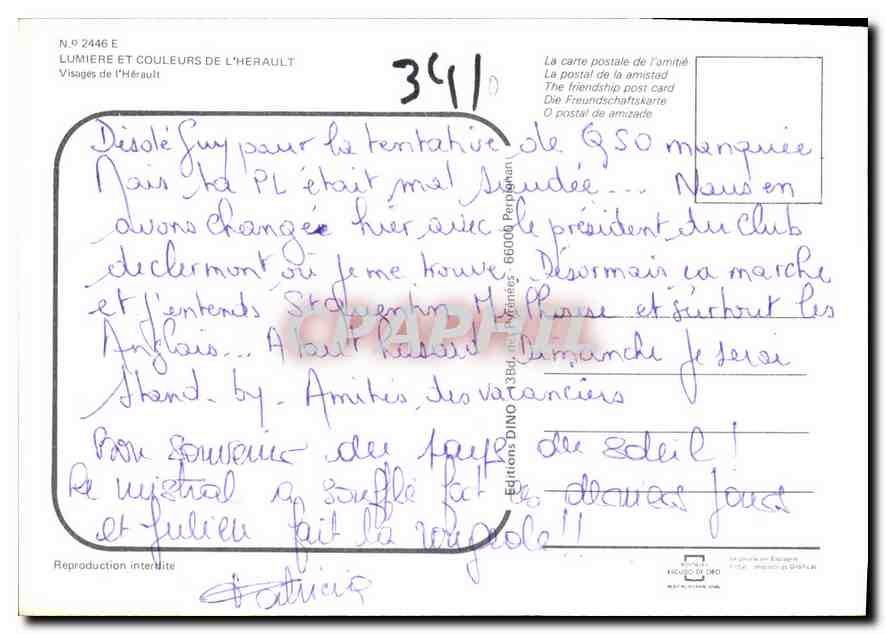 N.º 2446 E
LUMIERE ET COULEURS DE L'HERAULT
Visages de l'Hérault
341
La carte postale de l'amitié
La postal de la amistad
The friendship post card
Die Freundschaftskarte
O postal de amizade
Désolé Guy pour la tentative de QSO manquée
Mais ta PL était mal soudée... Nous en
avons changée hier avec le président du club
de clermont où je me trouve. Désormais ça marche
et j'entends St Quentin Mulhouse et surtout les
Anglais... A tout hasard Dimanche je serai
Stand-by. Amitiés des vacanciers
Bon souvenir du pays du soleil!
Le mistral a soufflé fort ces derniers jours
et Julien fait la rigole!!
Patricia
Editions DINO - 13Bd. des Pyrénées - 66000 Perpignan
CPAPHIL
Reproduction interdite
ESCUDO DE ORO